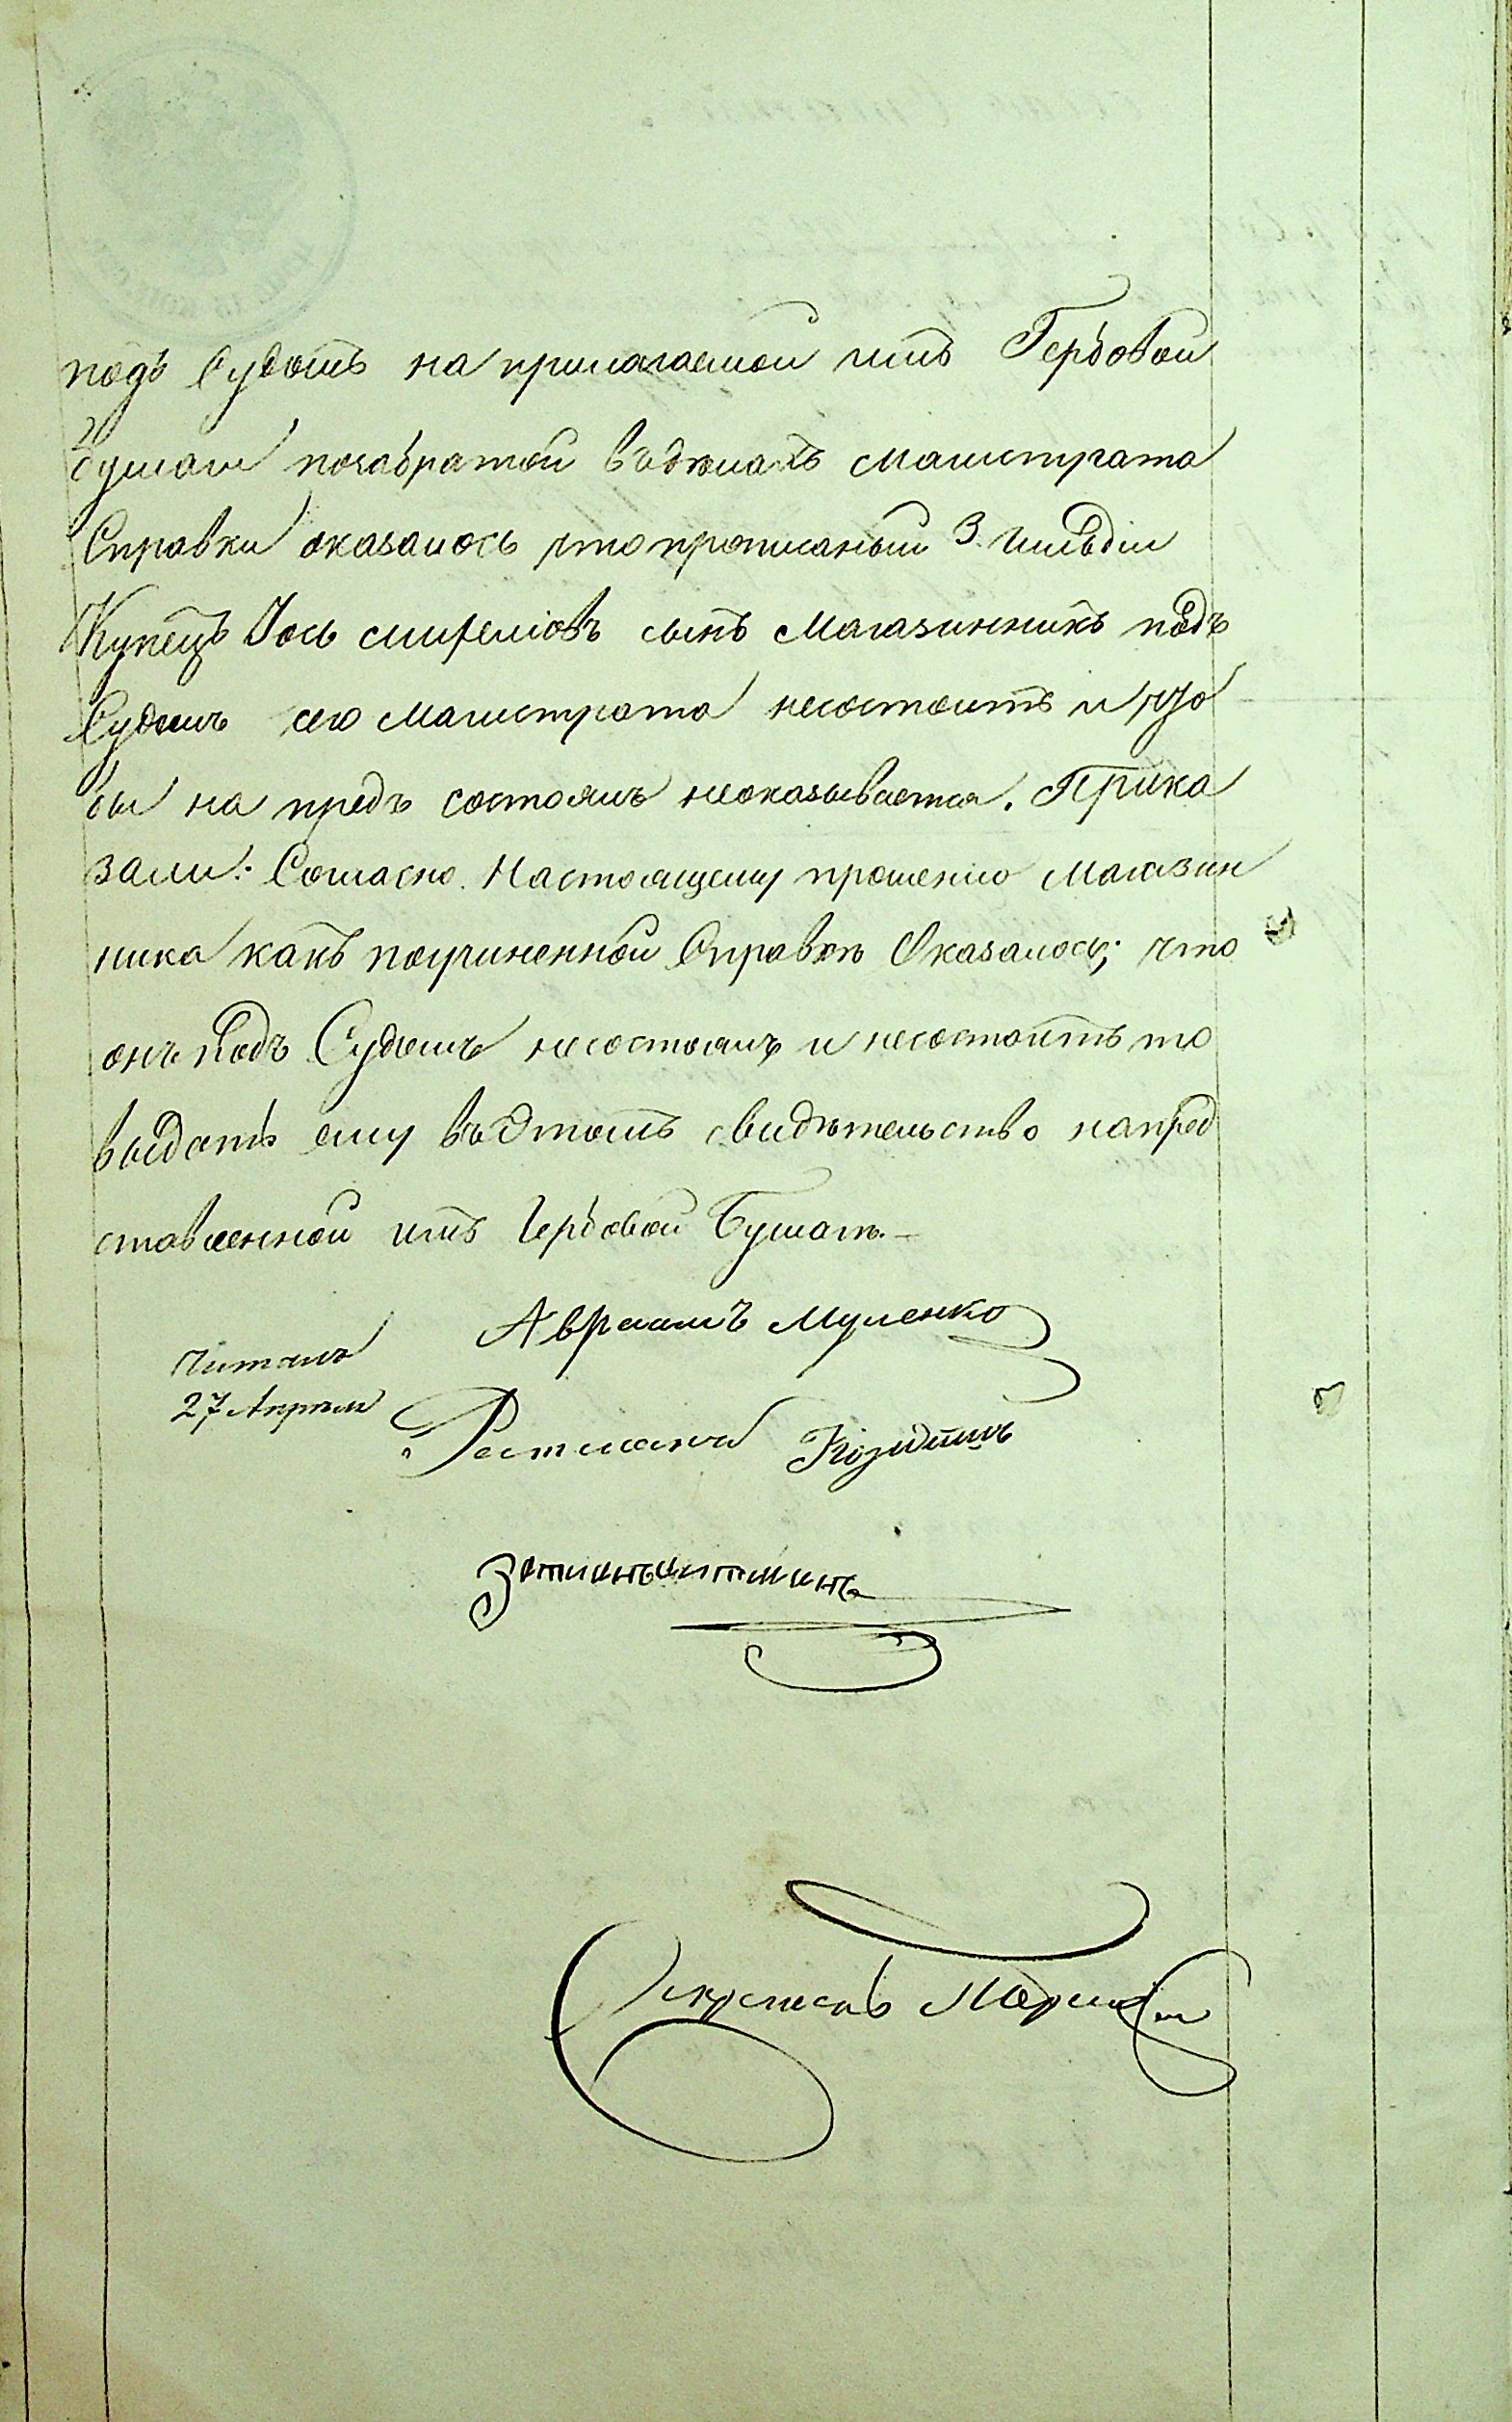 подъ Судомъ на прилагаемой имъ Гербовой
бумаги позабратой въделахъ Магистрата
Справки оказалось что прописаный 3. гильдіи
Купецъ Іось сынъ Магазинникъ подъ
Судомъ сего Магистрата несостоитъ и что
бы на предъ состоялъ неоказывается. Прика
зали: Согласно. Настоящему прошенію Магазин
ника какъ поучиненной Справкѣ Оказалось; что
онъ подъ Судомъ несостоялъ и несостоитъ то
выдать ему въ Этомъ свидѣтельство напред
ставленной имъ Гербовой Бумагѣ. –
Авраамъ Муленко
Читалъ
27 Апрѣля
Ратманъ
Секретарь